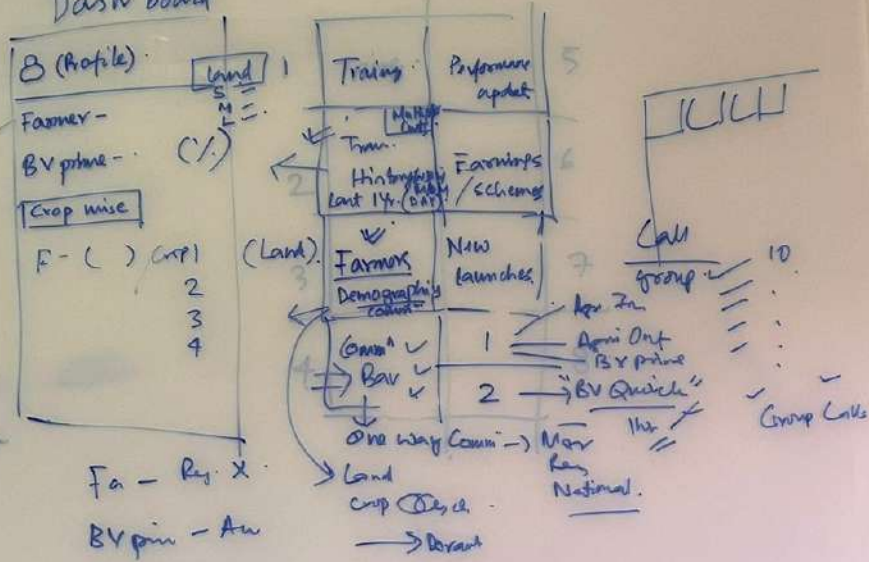 Dash board
8 (Profile).
Land 1
S
M
L
Farmer -
BV prime -
(%)
Crop wise
F - ( ) Crop 1
(Land).
2
3
4
Fa - Reg. X
BV pin - Au
Training
Performance
updat
5
Multiple
Tran.
2
Last 1 Yr. (
DAY)
Earnings
/ schemes
6
3
Farmers
Demographics
comm
New
launches
7
4
Comm
Bav
1
2
Agri In
Agri Out
BV prime
"BV Quick"
1hr
One way Comm → Mar
Reg
National.
Land
crop
Call
group
10
Group Calls